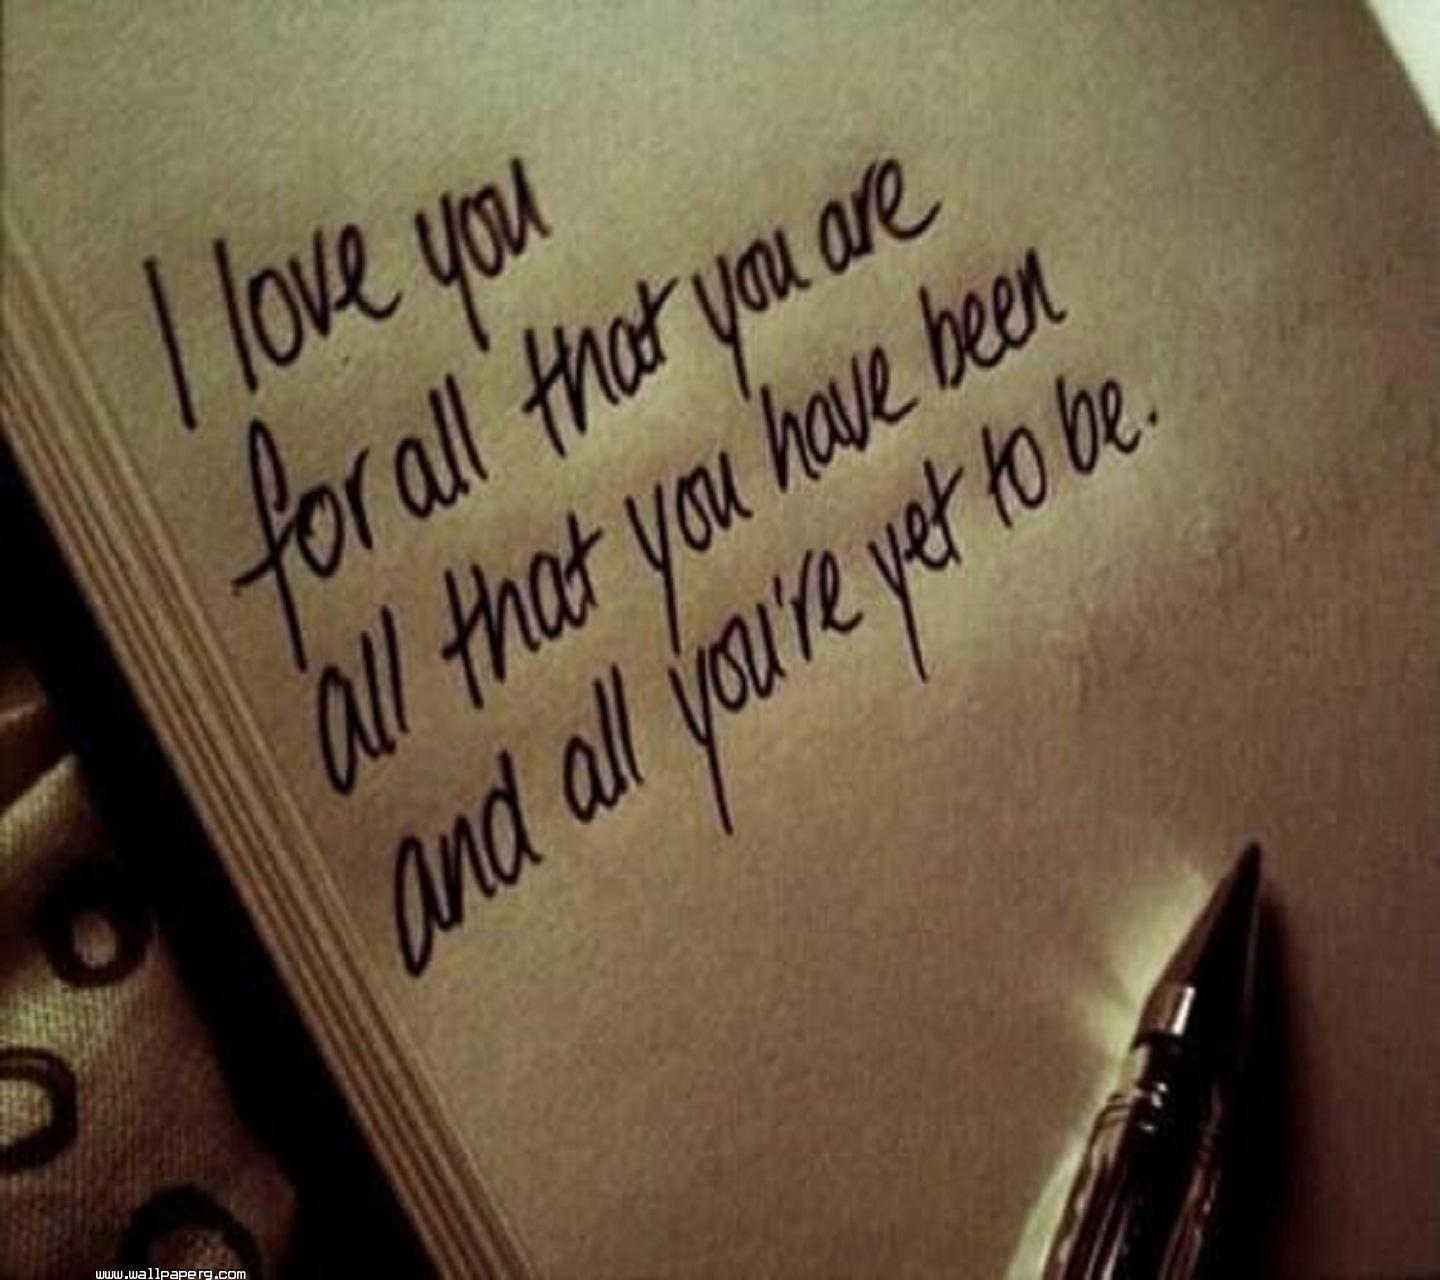 I love you
for all that you are
all that you have been
and all you're yet to be.
www.wallpaperg.com